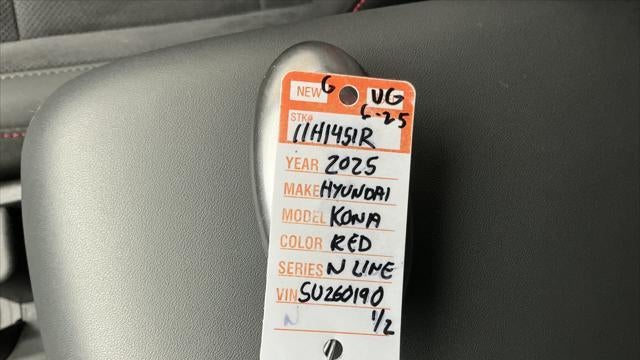 NEW G UG
6-25
STK#
11H1451R
YEAR 2025
MAKE HYUNDAI
MODEL KONA
COLOR RED
SERIES N LINE
VIN SU260190
N 1/2